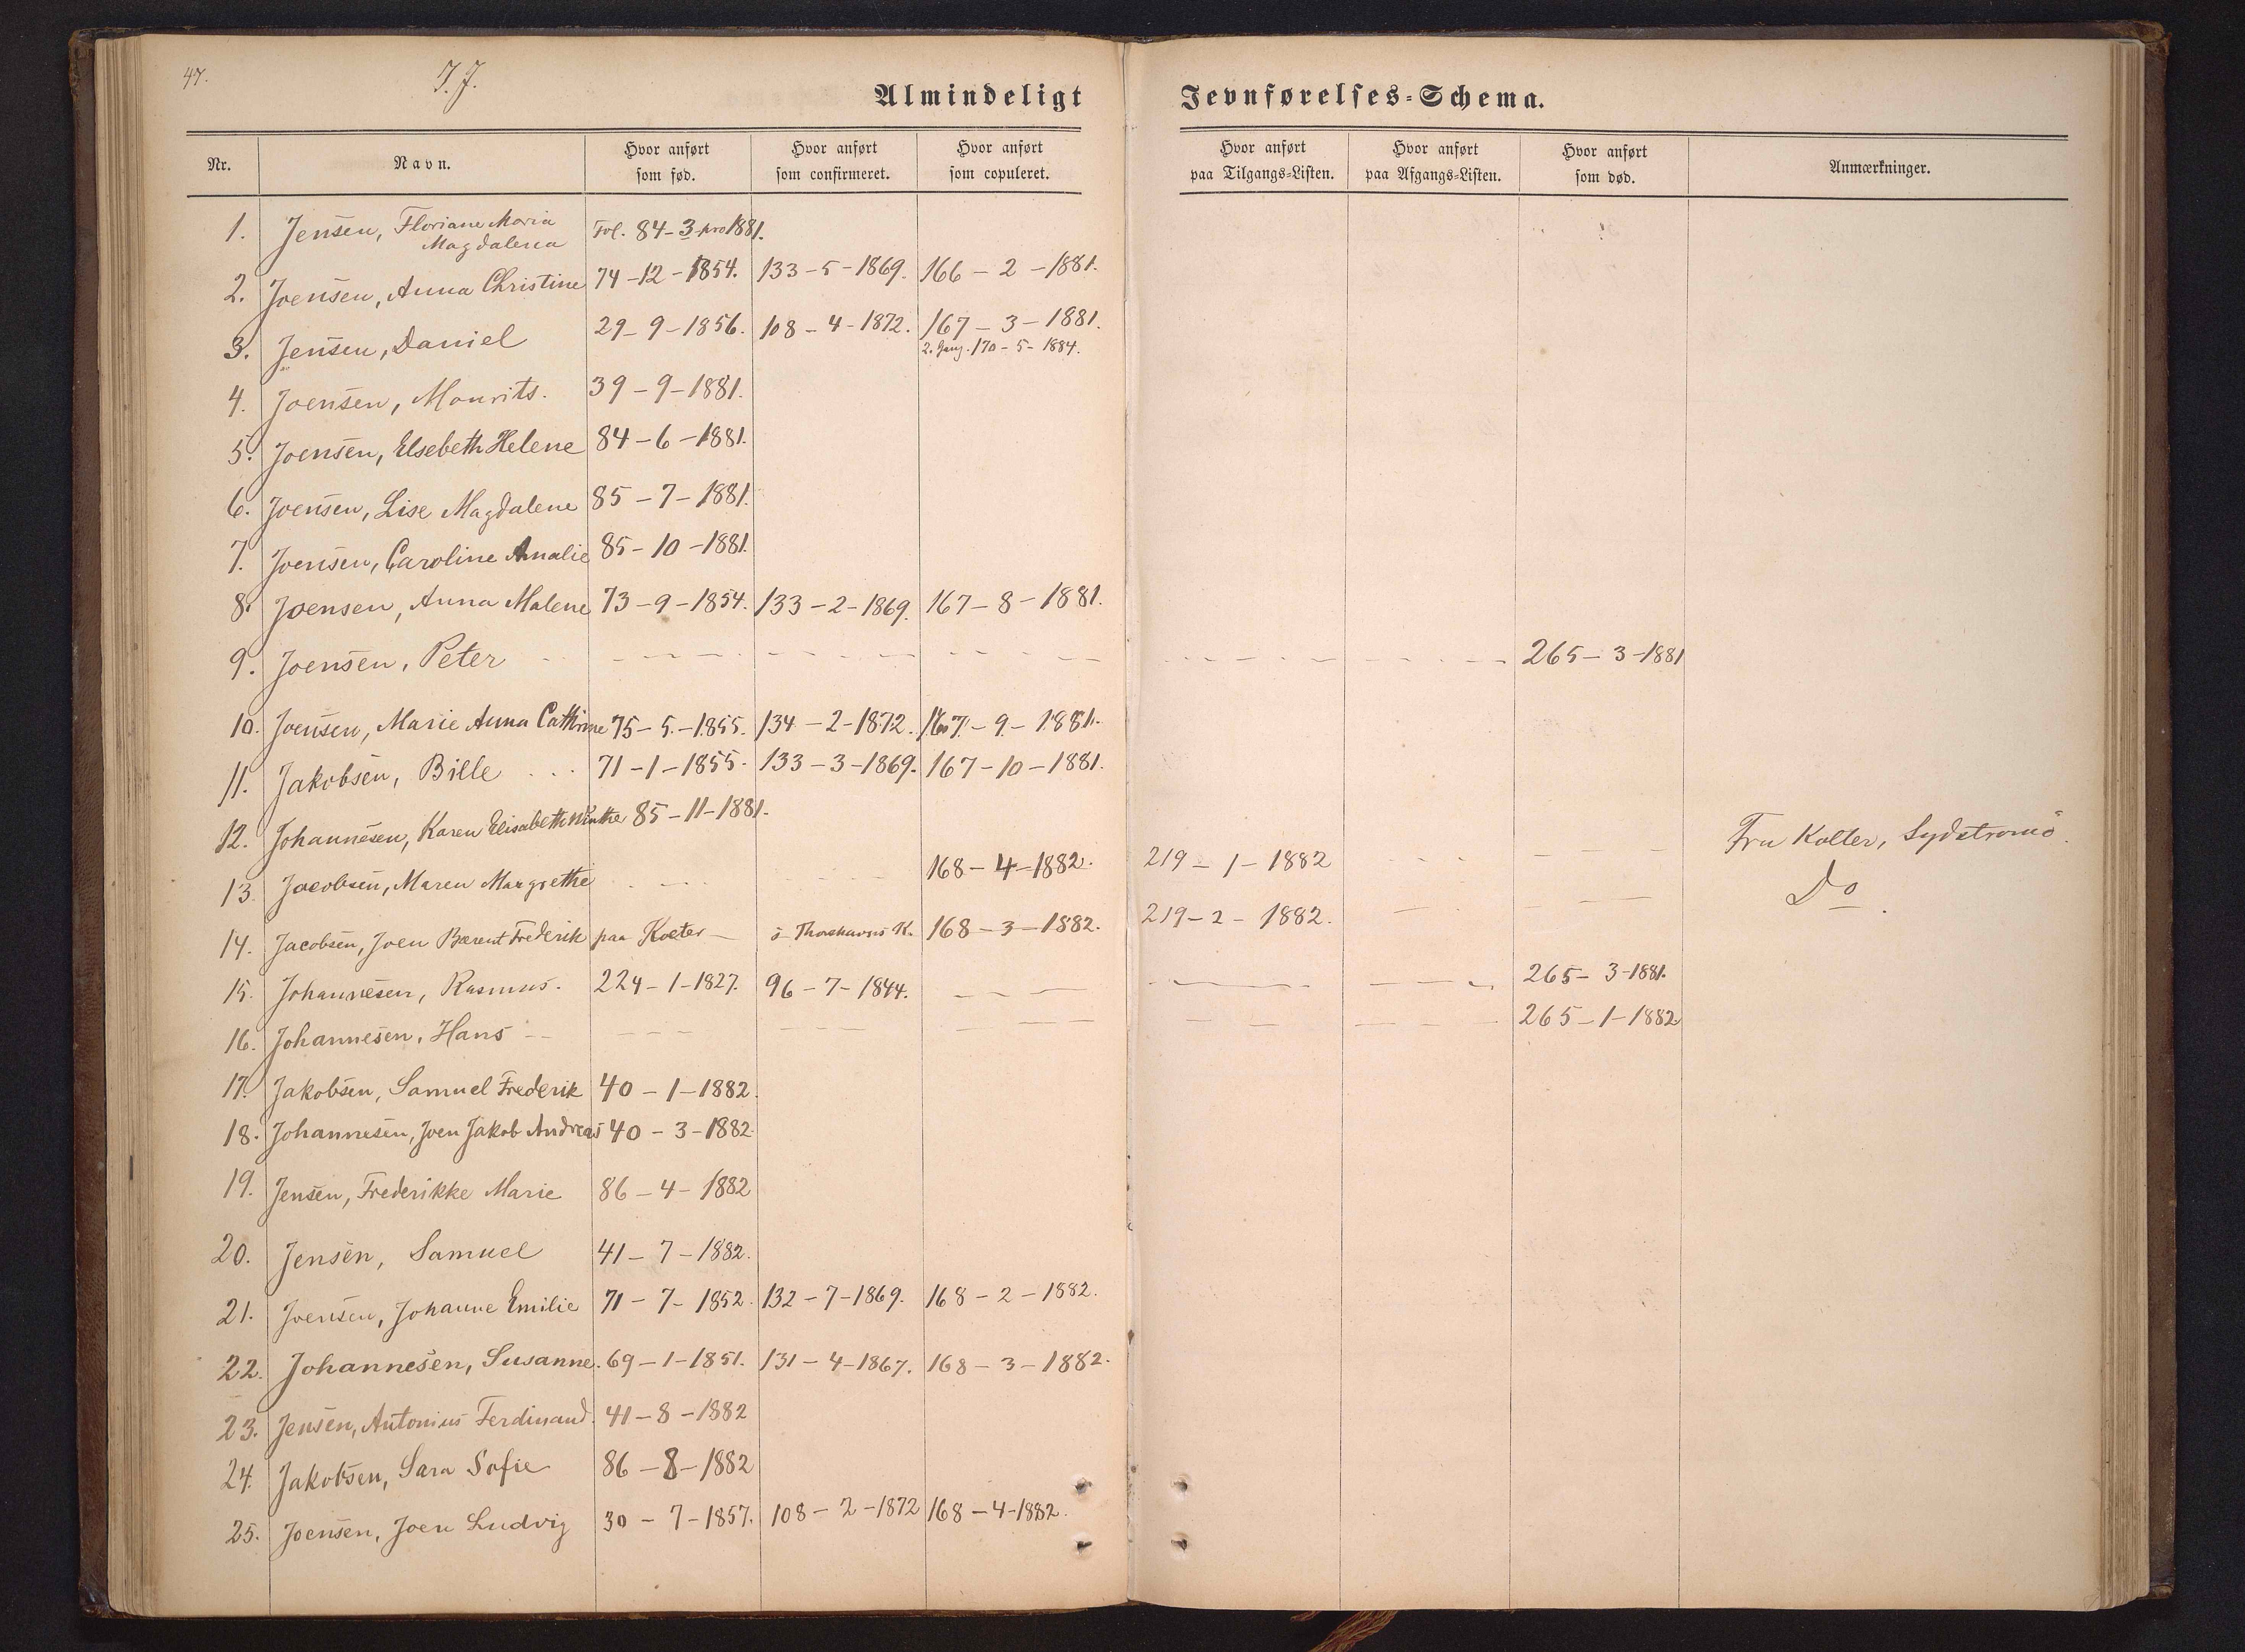 47.
I. J.
Almindeligt Jevnførelses-Schema.
Nr. Navn. Hvor anført som fød. Hvor anført som confirmeret. Hvor anført som copuleret. Hvor anført paa Tilgangs-Listen. Hvor anført paa Afgangs-Listen. Hvor anført som død. Anmærkninger.
1. Jensen, Floriane Maria Magdalena Fol. 84-3-pro 1881.
2. Joensen, Anna Christine 74-12-1854. 133-5-1869. 166-2-1881.
3. Jensen, Daniel 29-9-1856. 108-4-1872. 167-3-1881.
2. Gang. 170-5-1884.
4. Joensen, Mourits. 39-9-1881.
5. Joensen, Elsebeth Helene 84-6-1881.
6. Joensen, Lise Magdalene 85-7-1881.
7. Joensen, Caroline Amalie 85-10-1881.
8. Joensen, Anna Malene 73-9-1854. 133-2-1869. 167-8-1881.
9. Joensen, Peter 265-3-1881
10. Joensen, Marie Anna Cathrine 75-5-1855. 134-2-1872. 167-9-1881.
11. Jakobsen, Bille 71-1-1855. 133-3-1869. 167-10-1881.
12. Johannesen, Karen Elisabeth 85-11-1881.
13. Jacobsen, Maren Margrethe 168-4-1882. 219-1-1882 Fra Kolter, Sydstromö.
14. Jacobsen, Joen Berent Frederik paa Koeter i Thorshavns K. 168-3-1882. 219-2-1882. Do.
15. Johannesen, Rasmus. 224-1-1827. 96-7-1844. 265-3-1881.
16. Johannesen, Hans 265-1-1882.
17. Jakobsen, Samuel Frederik 40-1-1882.
18. Johannesen, Joen Jakob Andreas 40-3-1882.
19. Jensen, Frederikke Marie 86-4-1882
20. Jensen, Samuel 41-7-1882.
21. Joensen, Johanne Emilie 71-7-1852. 132-7-1869. 168-2-1882.
22. Johannesen, Susanne. 69-1-1851. 131-4-1867. 168-3-1882.
23. Jensen, Antonius Ferdinand. 41-8-1882
24. Jakobsen, Sara Sofie 86-8-1882
25. Joensen, Joen Ludvig 30-7-1857. 108-2-1872 168-4-1882.